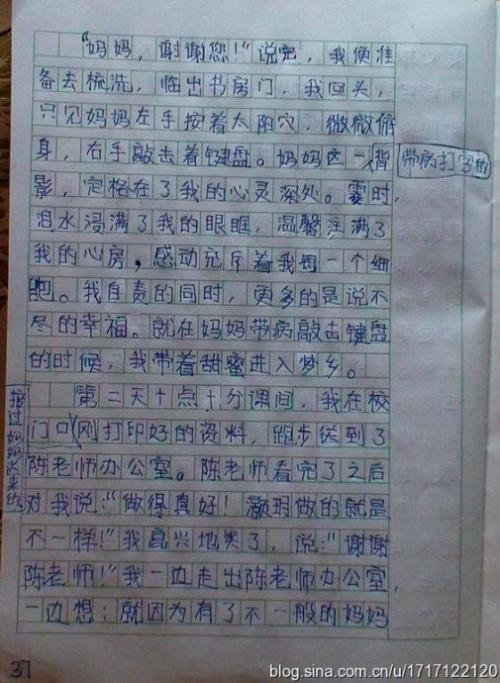 “妈妈，谢谢您！”说完，我便准
备去梳洗，临出书房门，我回头，
只见妈妈左手按着太阳穴，微微俯
身，右手敲击着键盘。妈妈这一背
带病打字的
影，定格在了我的心灵深处。霎时，
泪水浸满了我的眼眶，温馨注满了
我的心房，感动充斥着我每一个细
胞。我自责的同时，更多的是说不
尽的幸福。就在妈妈带病敲击键盘
的时候，我带着甜蜜进入梦乡。
第二天十点十分课间，我在校
接过妈妈送来的
门口刚打印好的资料，跑步送到了
陈老师办公室。陈老师看完了之后
对我说：“做得真好！灏玥做的就是
不一样！”我高兴地笑了，说：“谢谢
陈老师！”我一边走出陈老师办公室，
一边想：就因为有了不一般的妈妈
37
blog.sina.com.cn/u/1717122120